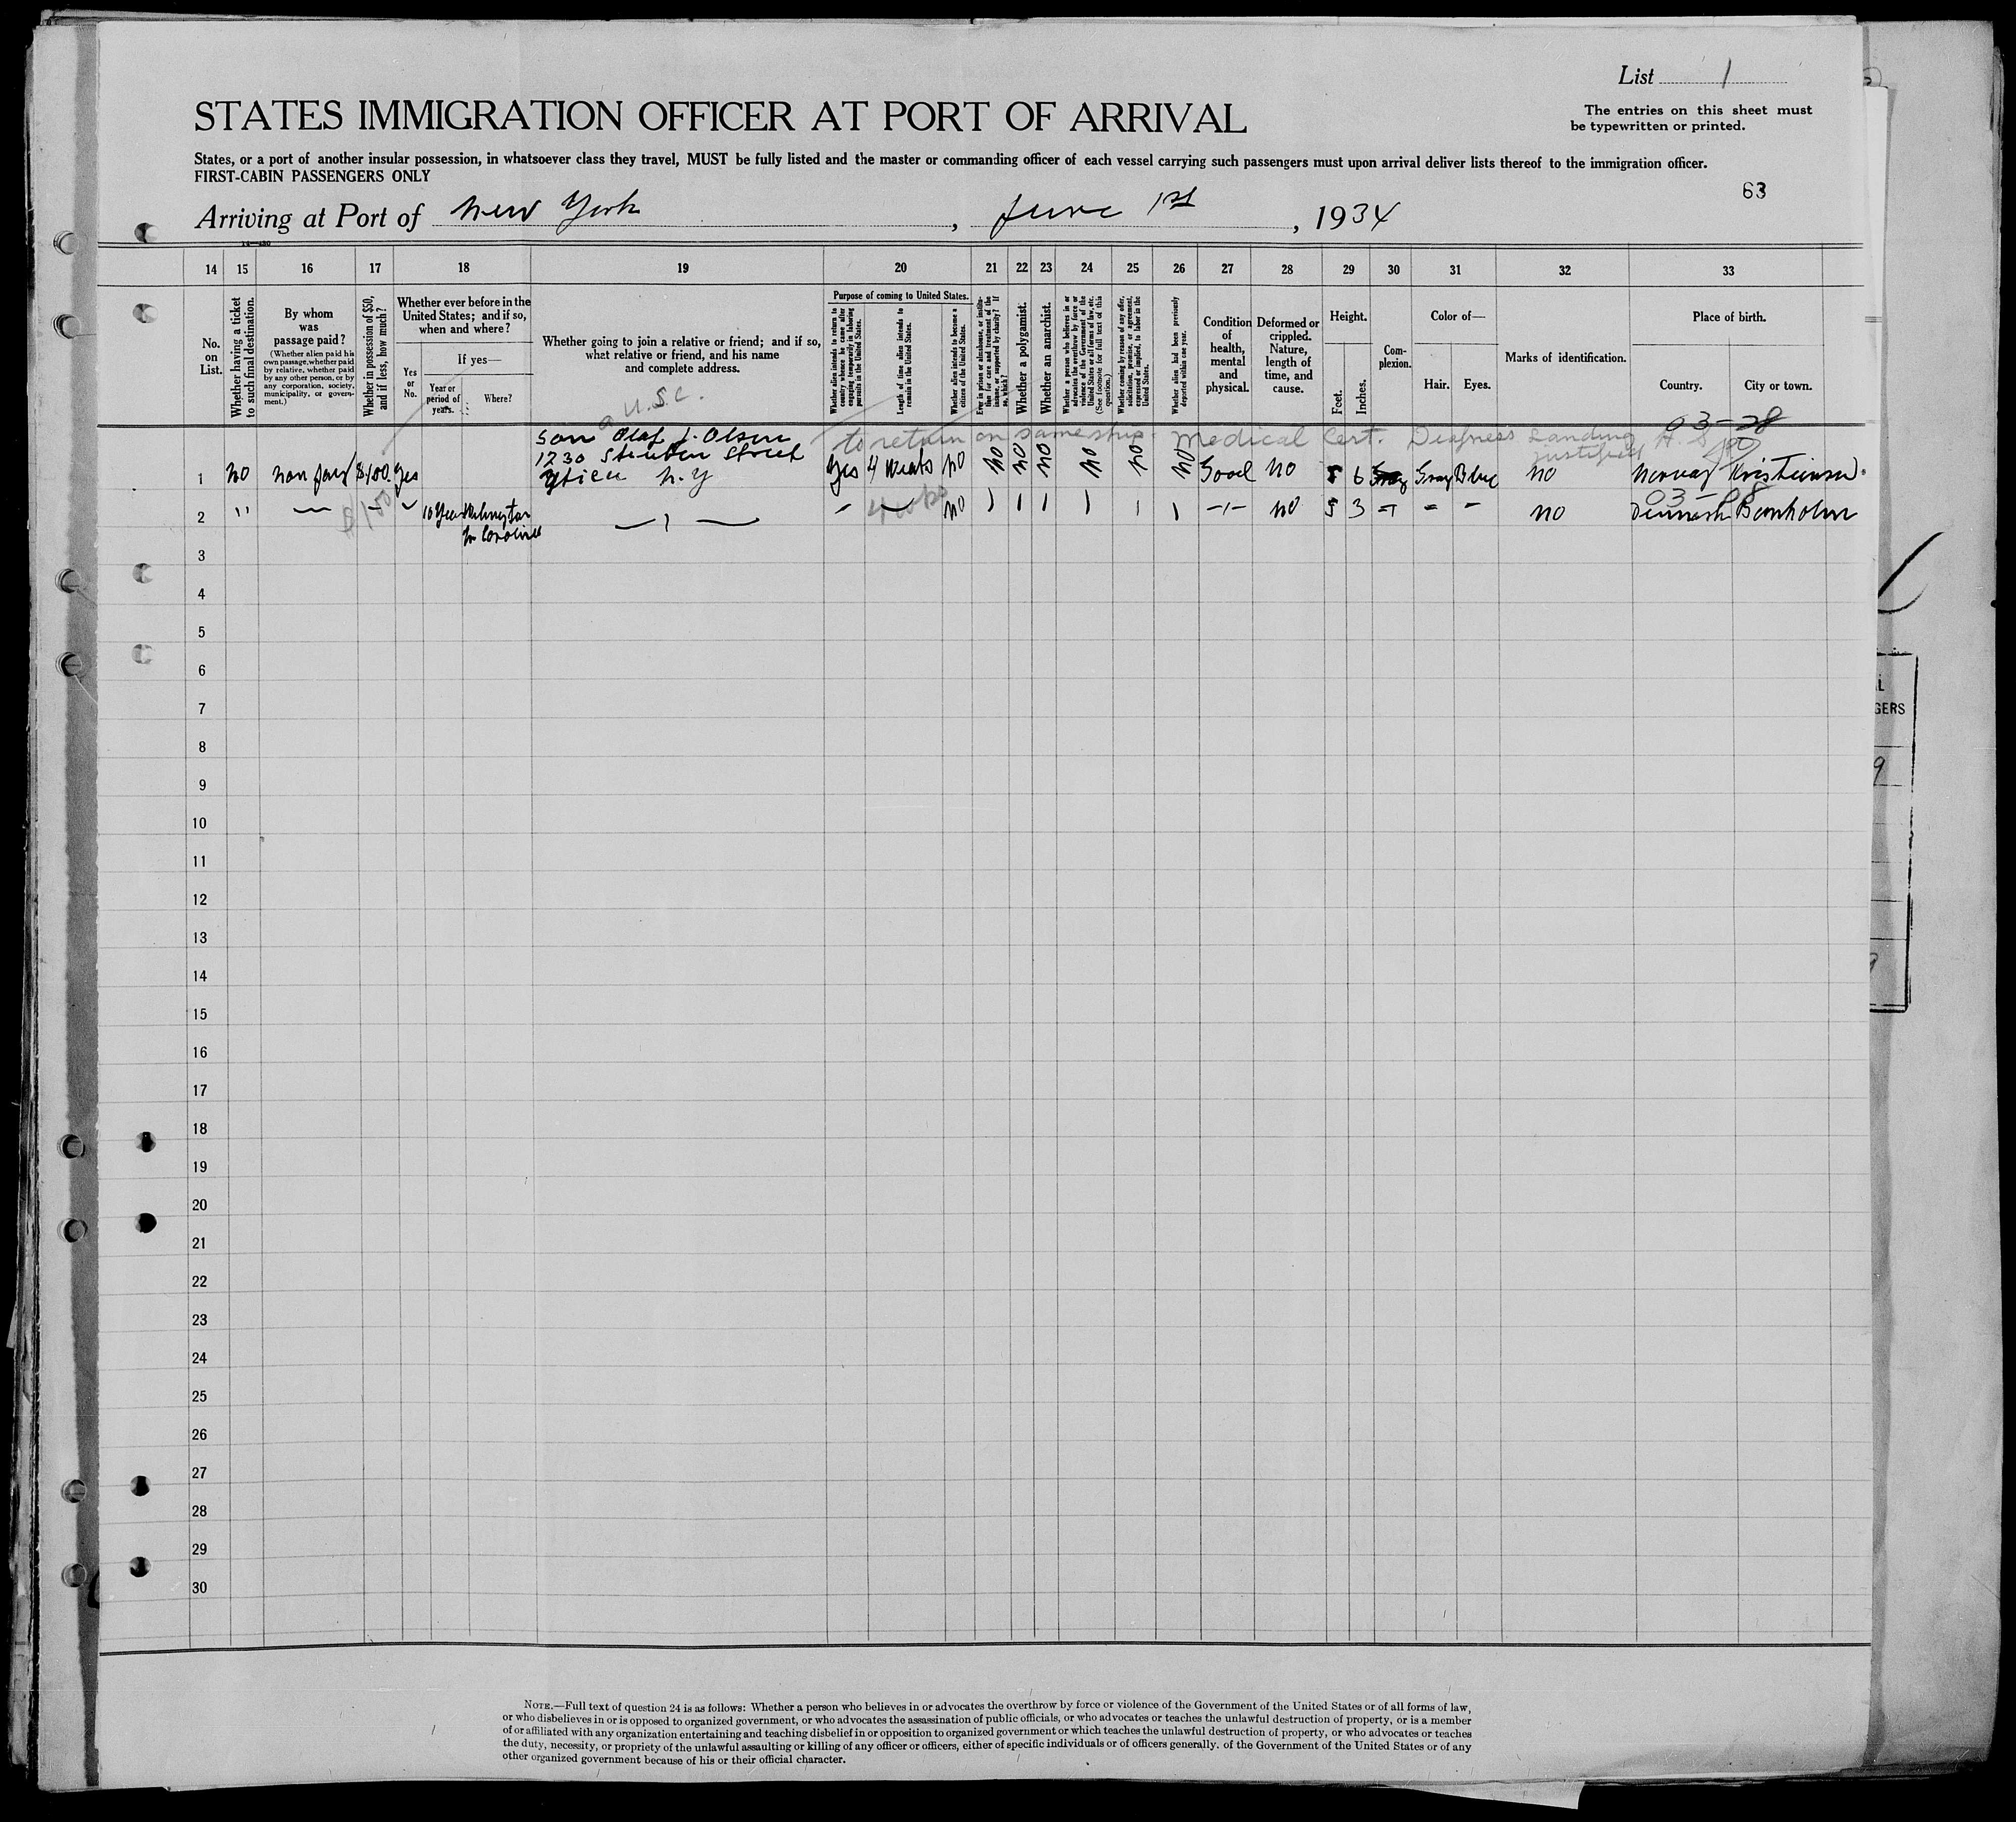 List 1
STATES IMMIGRATION OFFICER AT PORT OF ARRIVAL
The entries on this sheet must
be typewritten or printed.
States, or a port of another insular possession, in whatsoever class they travel, MUST be fully listed and the master or commanding officer of each vessel carrying such passengers must upon arrival deliver lists thereof to the immigration officer.
FIRST-CABIN PASSENGERS ONLY
63
Arriving at Port of New York, June 1st, 1934
14 15 16 17 18 19 20 21 22 23 24 25 26 27 28 29 30 31 32 33
No. on List.
Whether having a ticket to such final destination.
By whom was passage paid?
(Whether alien paid his own passage, whether paid by relative, whether paid by any other person, or by any corporation, society, municipality, or government.)
Whether in possession of $50, and if less, how much?
Whether ever before in the United States; and if so, when and where?
Yes or No.
If yes—
Year or period of years.
Where?
Whether going to join a relative or friend; and if so, what relative or friend, and his name and complete address.
Purpose of coming to United States.
Whether alien intends to return to country whence he came after engaging temporarily in laboring pursuits in the United States.
Length of time alien intends to remain in the United States.
Whether alien intends to become a citizen of the United States.
Ever in prison or almshouse, or institution for care and treatment of the insane, or supported by charity? If so, which?
Whether a polygamist.
Whether an anarchist.
Whether a person who believes in or advocates the overthrow by force or violence of the Government of the United States or all forms of law, etc. (See footnote for full text of this question.)
Whether coming by reason of any offer, solicitation, promise, or agreement, expressed or implied, to labor in the United States.
Whether alien had been previously deported within one year.
Condition of health, mental and physical.
Deformed or crippled. Nature, length of time, and cause.
Height.
Feet.
Inches.
Complexion.
Color of—
Hair.
Eyes.
Marks of identification.
Place of birth.
Country.
City or town.
U.S.C.
03-28
son Olaf J. Olsen to return on same ship. Medical Cert. Deafness Landing justified
1230 Steuben Street
1 No $100. Yes N.Y Yes 4 No No No No No No No Good No 5 6 Gray Blue No Norway
$100
03-08
2 " 10 Year 4 wks No 1 1 1 1 1 1 No 5 3 No Denmark Bornholm
3
4
5
6
7
8
9
10
11
12
13
14
15
16
17
18
19
20
21
22
23
24
25
26
27
28
29
30
GERS
9
NOTE.—Full text of question 24 is as follows: Whether a person who believes in or advocates the overthrow by force or violence of the Government of the United States or of all forms of law,
or who disbelieves in or is opposed to organized government, or who advocates the assassination of public officials, or who advocates or teaches the unlawful destruction of property, or is a member
of or affiliated with any organization entertaining and teaching disbelief in or opposition to organized government or which teaches the unlawful destruction of property, or who advocates or teaches
the duty, necessity, or propriety of the unlawful assaulting or killing of any officer or officers, either of specific individuals or of officers generally, of the Government of the United States or of any
other organized government because of his or their official character.